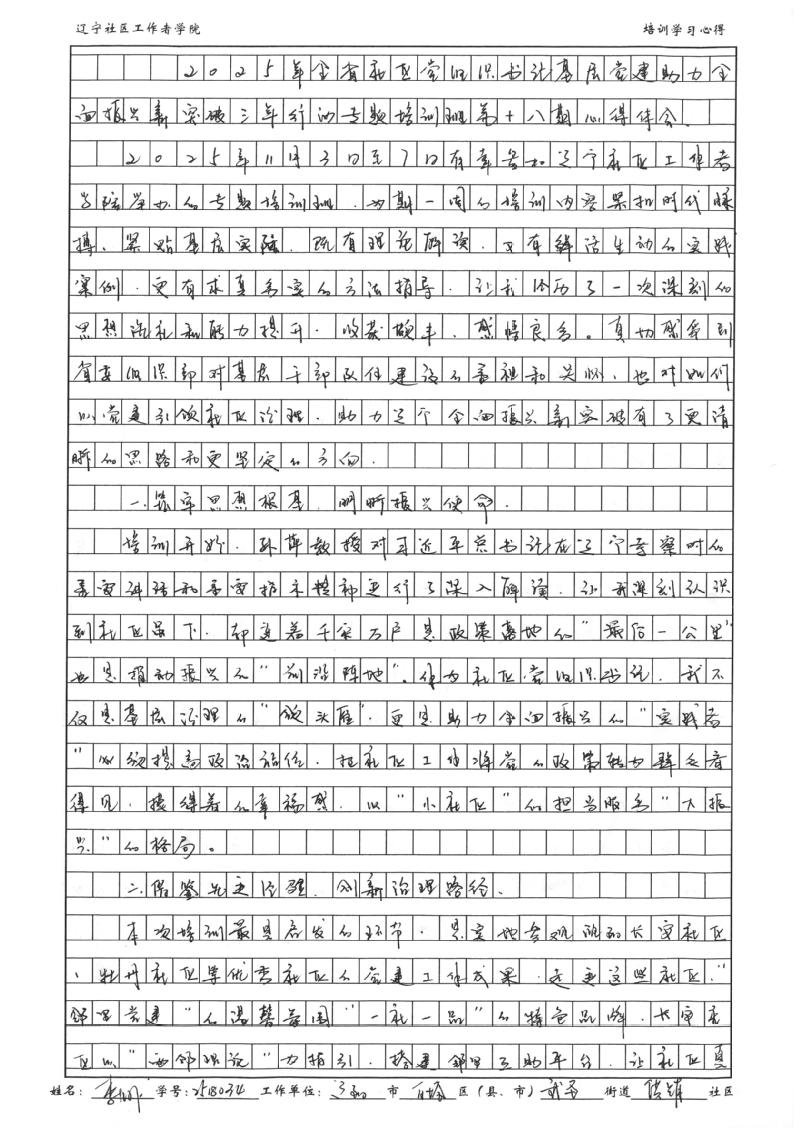 辽宁社区工作者学院 培训学习心得
2025年全省社区党组织书记基层党建助力全
面振兴新突破三年行动专题培训班第十八期心得体会
2025年11月3日至7日有幸参加辽宁社区工作者
学院举办的专题培训班.为期一周的培训内容紧扣时代脉
搏、紧贴基层实际.既有理论解读.又有鲜活生动的实践
案例.更有求真务实的方法指导.让我经历了一次深刻的
思想洗礼和能力提升.收获颇丰.感悟良多。真切感受到
省委组织部对基层干部队伍建设的重视和关怀.也对如何
以党建引领社区治理.助力辽宁全面振兴新突破有了更清
晰的思路和更坚定的方向.
一.筑牢思想根基.明晰振兴使命.
培训开始.孙萍教授对习近平总书记在辽宁考察时的
重要讲话和重要指示精神进行了深入解读.让我深刻认识
到社区虽小.却连着千家万户是政策落地的“最后一公里”
也是推动振兴的“前沿阵地”.作为社区党组织书记.我不
仅是基层治理的“领头雁”.更是助力全面振兴的“实践者
”必须提高政治站位.把社区工作将党的政策转为群众看
得见.摸得着的幸福感.以“小社区”的担当服务“大振
兴”的格局。
二.借鉴先进经验.创新治理路径.
本次培训最具启发的环节.是实地参观沈阳长安社区
、牡丹社区等优秀社区的党建工作成果.走进这些社区.“
邻里党建”的温馨氛围“一社一品”的特色品牌.长安社
区以“两邻理论”为指引.搭建邻里互助平台.让社区真
姓名： 学号：2518034 工作单位： 市 区（县、市） 街道 社区